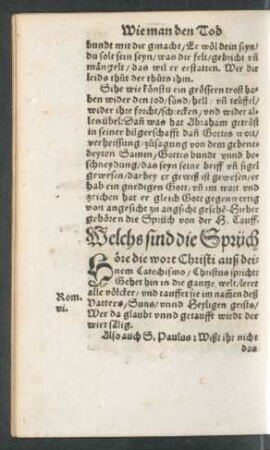 Wie man den Tod
bundt mit dir gmacht / Er wöl dein seyn /
du solt sein seyn / was dir felt / gebricht vñ
mãngelt / das wil er erstatten. Wer dir
leids thüt der thüts ihm.
Sihe wie köntstu ein grössern trost ha=
ben wider den tod / sünd / hell / vñ teüffel /
wider ihr forcht / schrecken / vnd wider al=
les übel: Dañ was hat Abraham getröst
in seiner bilgerschafft dañ Gottes wort /
verheissung / zůsagung von dem gebene=
deyten Samen / Gottes bunde vnnd be=
schneydung / das seyn seine brieff vñ sigel
gewesen / darbey er gewiß ist gewesen / er
hab ein gnedigen Gott / vñ im wort vnd
zeichen hat er gleich Gott gegenwertig
von angesicht zů angsicht gesehẽ. Hieher
gehören die Sprüch von der H. Tauff.
Welchs sind die Sprüch
Höre die wort Christi auß dei=
nem Catechismo / Christus spricht:
Gehet hin in die gantze welt / leret
alle völcker / vnd tauffet sie im namen deß
Vatters / Suns / vnnd Heyligen geists /
Wer da glaubt vnnd getaufft wirdt der
wirt sälig.
Rom.
vi.
Also auch S. Paulus: Wißt ihr nicht
das